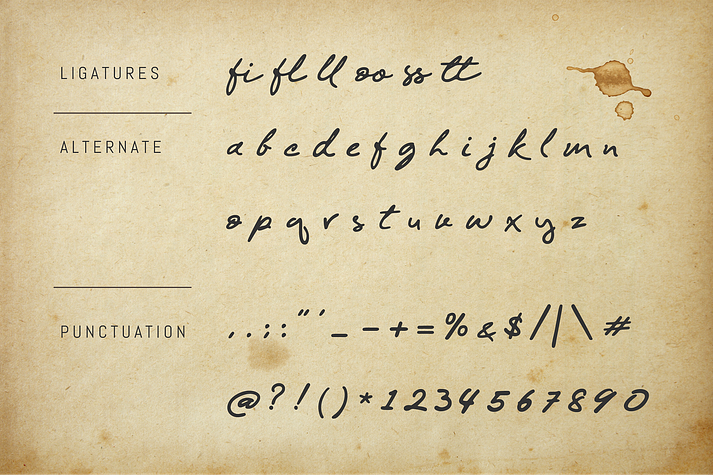 LIGATURES fi fl ll oo ss tt
ALTERNATE a b c d e f g h i j k l m n
o p q r s t u v w x y z
PUNCTUATION , . ; : " ' _ - + = % & $ / | \ #
@ ? ! ( ) * 1 2 3 4 5 6 7 8 9 0